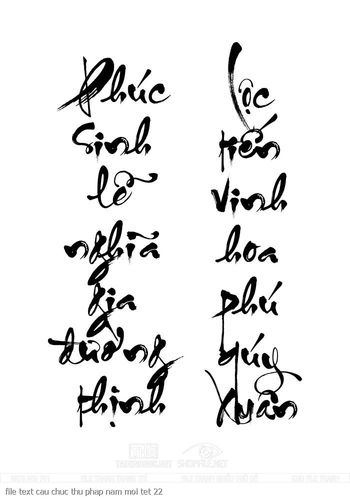 Phúc
sinh
lễ
nghĩa
gia
đường
thịnh
Lộc
tiến
vinh
hoa
phú
quý
xuân
SHOPFILE.NET
file text cau chuc thu phap nam moi tet 22